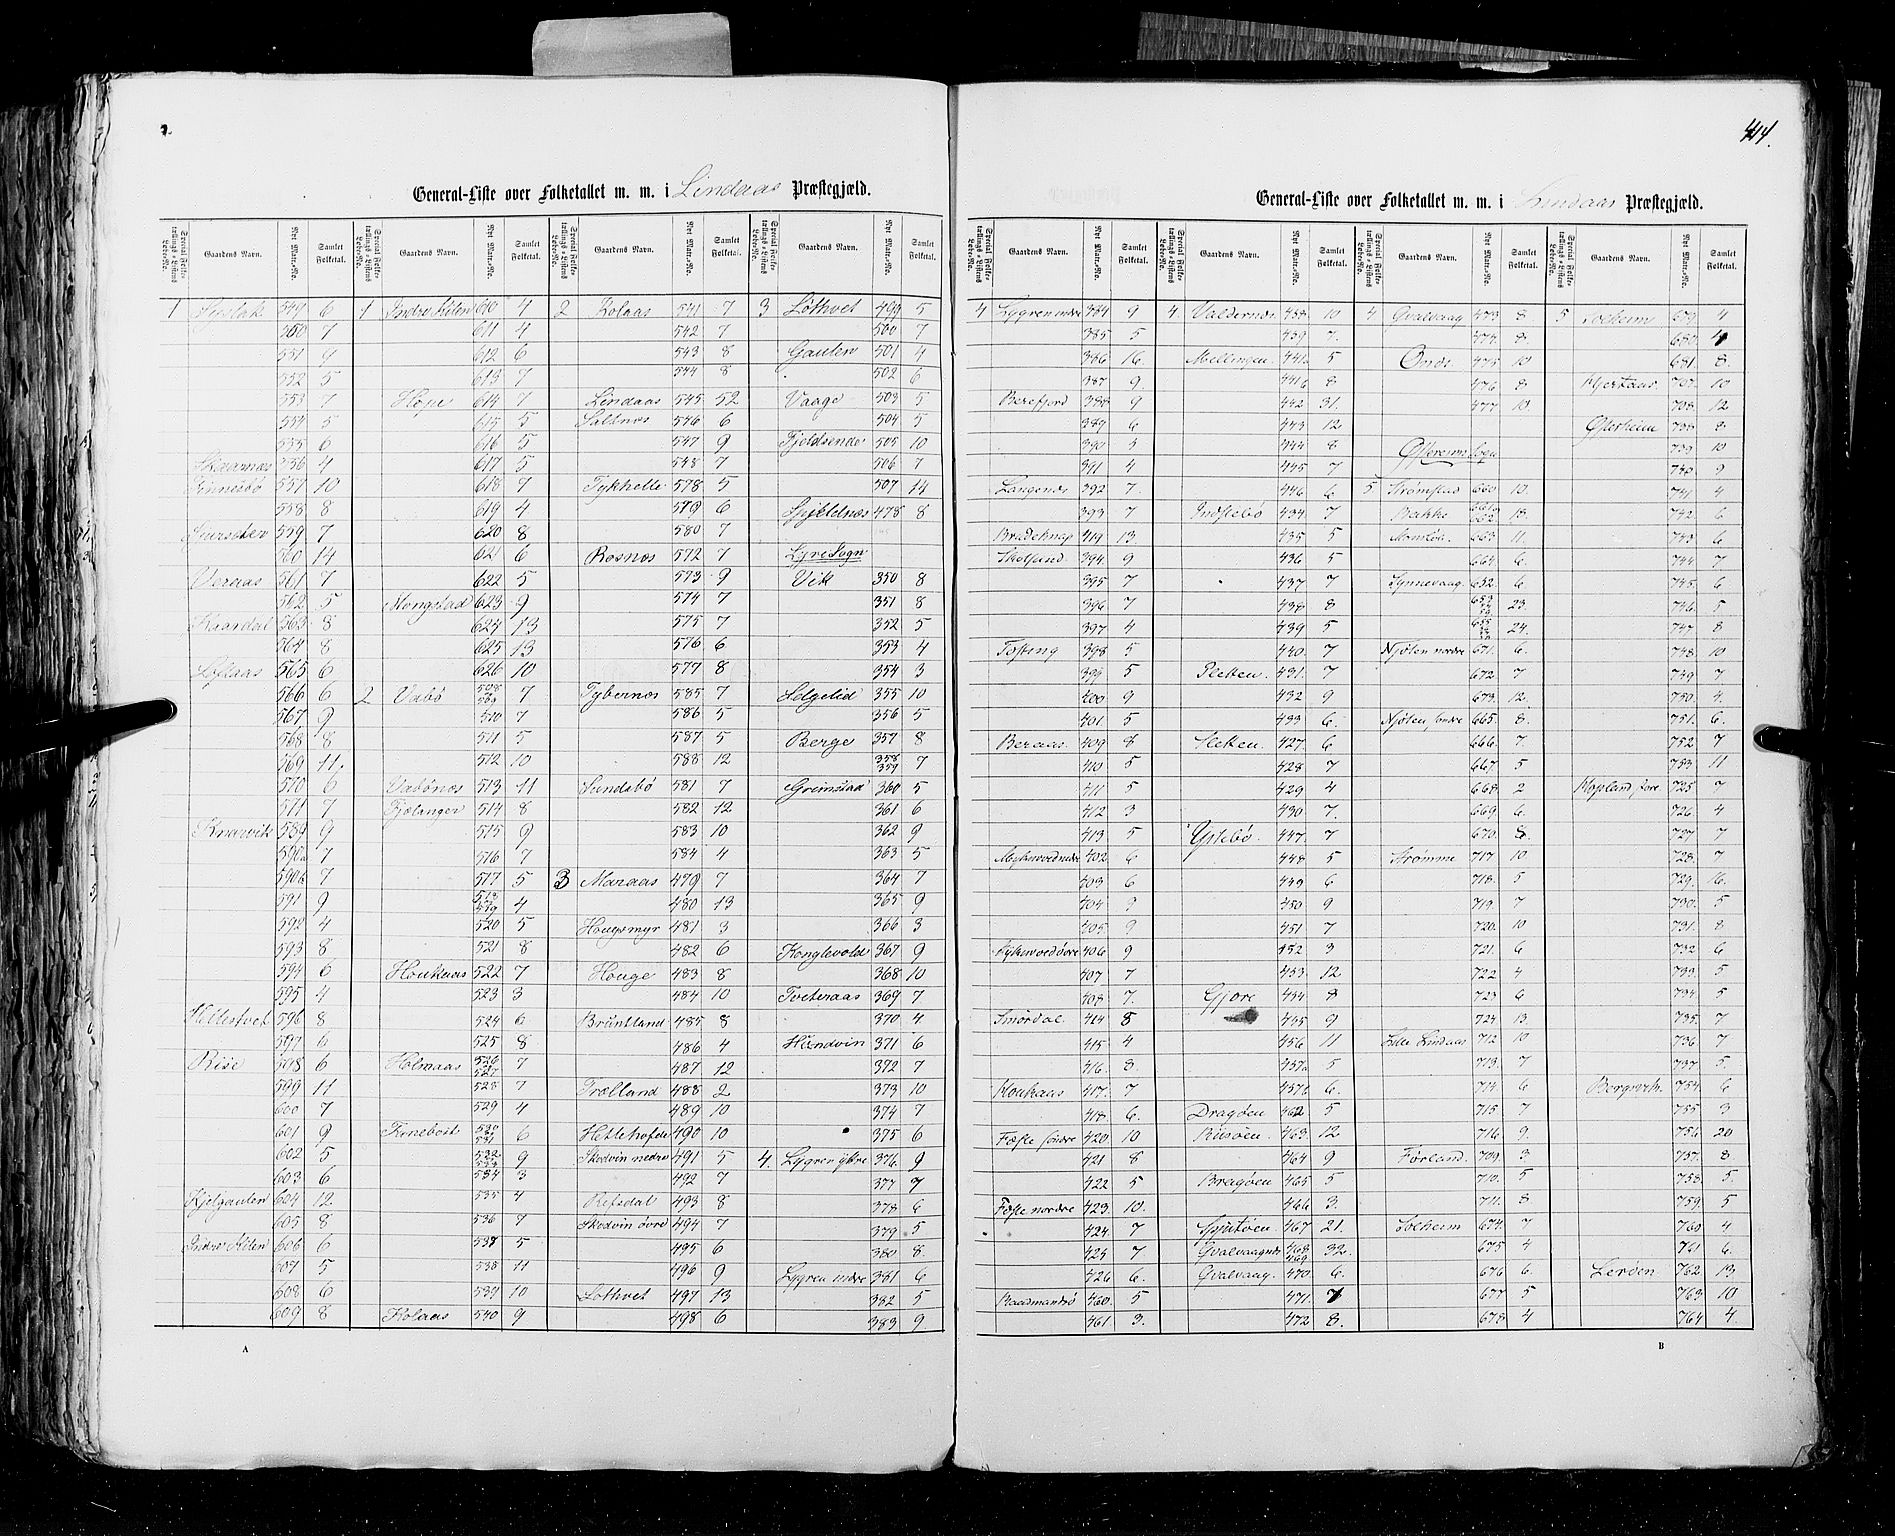 444.
General-Liste over Folketallet m. m. i Lindaas Præstegjæld.
Special Folketællings-Listens Løbe-No. Gaardens Navn. Nyt Matr.-No. Samlet Folketal. Special Folketællings-Listens Løbe-No. Gaardens Navn. Nyt Matr.-No. Samlet Folketal. Special Folketællings-Listens Løbe-No. Gaardens Navn. Nyt Matr.-No. Samlet Folketal. Special Folketællings-Listens Løbe-No. Gaardens Navn. Nyt Matr.-No. Samlet Folketal.
1 549 6 1 Indre Kilen 610 4 2 Kolaas 541 7 3 Løthvet 499 5
550 7 611 4 542 7 500 7
551 9 612 6 543 8 Gauten 501 4
552 5 613 7 544 8 502 6
553 7 Hope 614 7 Lindaas 545 52 Vaage 503 5
554 5 615 5 Saltnes 546 6 504 5
555 6 616 5 547 9 Fjeldsende 505 10
556 4 617 5 548 7 506 7
557 10 618 7 Tykhelle 578 5 507 14
558 8 619 4 579 6 478 8
559 7 620 8 580 7
560 14 621 6 Rosnes 572 7 Lyre Sogn
Veraas 561 7 622 5 573 9 Vik 350 8
562 5 Mongstad 623 9 574 7 351 8
Kaardal 563 8 624 13 575 7 352 5
564 8 625 13 576 6 353 4
Loflaas 565 6 626 10 577 8 354 3
566 6 2 Vabø 508 509 7 Tybernes 585 7 Helgelid 355 10
567 9 510 7 586 5 356 5
568 8 511 5 587 5 Berge 357 8
569 11. 512 10 588 12 358 359 7
570 6 Vabønes 513 11 Sundsbø 581 7 Grimstad 360 5
571 7 Fjelanger 514 8 582 12 361 6
Knarvik 589 9 515 9 583 10 362 9
590a 7 516 7 584 4 363 5
590b 7 517 5 3 Maraas 479 7 364 7
591 9 518 519 4 480 13 365 9
592 4 520 5 Hougsmyr 481 3 366 3
593 8 521 8 482 6 Konglevold 367 9
594 6 Houkaas 522 7 Houge 483 8 368 10
595 4 523 3 484 10 Tveteraas 369 7
Hellestvet 596 8 524 6 Bruntland 485 8 370 4
597 6 525 8 486 4 Hundvin 371 6
Rise 598 6 Holmaas 526 527 7 487 12 372 7
599 11 528 7 Trælland 488 2 373 10
600 7 529 4 489 10 374 7
601 9 530 531 6 490 10 375 6
602 5 532 533 9 Skodvin nedre 491 5 4. Lygren ytre 376 9
603 6 534 3 492 7 377 7
Kjelgauten 604 12 535 4 Refsdal 493 8 378 6
605 8 536 7 Skodvin øvre 494 7 379 5
Indre Kilen 606 6 537 5 495 6 380 8.
607 5 538 11 496 9 Lygren indre 381 6
608 6 539 10 Løthvet 497 13 382 5
609 8 Kolaas 540 9 498 6 383 9.
A
General-Liste over Folketallet m. m. i Lindaas Præstegjæld.
Special Folketællings-Listens Løbe-No. Gaardens Navn. Nyt Matr.-No. Samlet Folketal. Special Folketællings-Listens Løbe-No. Gaardens Navn. Nyt Matr.-No. Samlet Folketal. Special Folketællings-Listens Løbe-No. Gaardens Navn. Nyt Matr.-No. Samlet Folketal. Special Folketællings-Listens Løbe-No. Gaardens Navn. Nyt Matr.-No. Samlet Folketal.
4 Lygren indre 384 9 4. Valdernes 458 10 4 Qvalvaag 473 8 5 Soeheim 679 4
385 5 459 7. 474 8. 680 4
386 16. Mellingen 441a 5 475 10 681. 8.
387 9. 441b 8 476 8 707. 10
Berefjord 388 9 442 31. 477 10. 708. 12
389 6 443 12 Østerheim 738. 8
390 5 444 8 Østerems Sogn 739. 10
391 4 445 7 740. 9
392 7. 446 6 5 Strømstad 660 10. 741. 4
393 7 Indstebø 434 7 Bakke 661 662 13. 742. 6
419 13. 435 5 663 11. 743. 6
394 9 436 5 664. 6. 744. 7
395 7 437 7 652. 6 745. 6
396 7 438 8 23. 746. 5
397 4 439 5 24. 747. 8
398 5 440. 7 Njøten nordre 671. 6. 748. 10
399 5 Sletten 431. 7 672. 7 749. 7
400 9 432 9 673. 12. 750. 4.
401. 5 433 6. Njøten søndre 665. 8. 751. 6.
Beraas. 409 8 Sletten. 427. 6 666. 7. 752. 7
410 5 428 7 667. 5 753. 11
411 5 429 4 668. 2 Kopland store 725. 7
412 3 430 7. 669. 6. 726. 4
413 5 Ystebø. 447. 7 670. 8. 727. 7
402. 6 448 5 Strømme 717. 10. 728. 7
403 6 449 6 718. 5 729. 16.
404 9 450 9 719. 7 730. 5
405 9 451 7 720. 10 731. 8
406 9 452 3 721. 6 732. 6
407 7 453 12 722 4 733. 5
408 7. Gjøre 454 8 723 6 734 5
Smørdal 414 8 455 9 724 13. 735. 7
415 4 456 11 Lille Lindaas 712 10 736 7
416 8. 457a 5 713. 7 737 5.
Houkaas 417. 7 457b 6. 714 6 754 6
418 6. Dragøen 462 5 715 7 755 3
Fæste søndre 420 10 Risøen. 463. 12 716 9. 756 20
421 8 464 9 Førland. 709. 3 757. 8
422 5 Bragøen 465 5 710. 5 758. 5.
Fæste nordre 423. 10. 466 3. 711. 8 759. 5
424. 7 467 21. Soeheim 674. 7 760 4
425 7 Qvalvaagnes 468 469 32. 675 4 761 6.
426 6. Qvalvaag. 470 6. 676 6. Leroen 762. 13
460. 5 471. 7 677 5 763. 10
461 3. 472 8. 678 4 764 4.
B